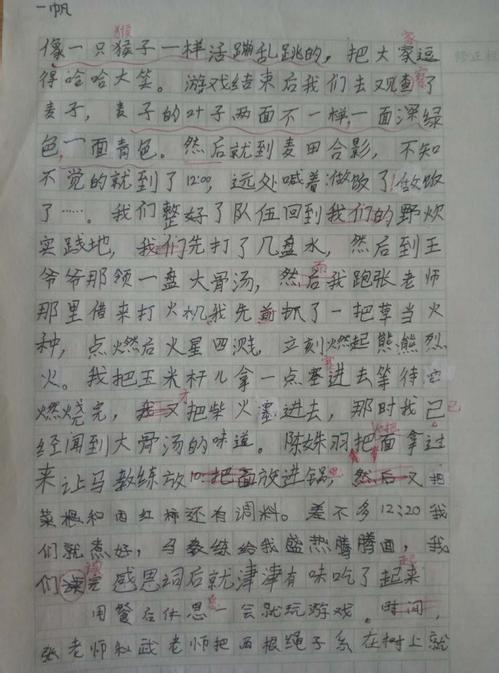 一帆
像一只猴子一样活蹦乱跳的，把大家逗
得哈哈大笑。游戏结束后我们去观查了
麦子，麦子的叶子两面不一样，一面深绿
色，一面青色。然后就到麦田合影，不知
不觉的就到了12:00，远处喊着：做饭了！做饭
了……。我们整好了队伍回到我们的野炊
实践地，我们先打了几盘水，然后到王
爷爷那领一盘大骨汤，然后我跑张老师
那里借来打火机我先前抓了一把草当火
种，点燃后火星四溅，立刻燃起熊熊烈
火。我把玉米杆儿拿一点塞进去等待它
燃烧完，我又把柴火塞进去，那时我已
经闻到大骨汤的味道。陈姝羽把面拿过
来让马教练放10把面放进锅，然后又把
菜根和西红柿还有调料。差不多12:20我
们就煮好，马教练给我盛热腾腾面，我
们 完感恩词后就津津有味吃了起来
用餐后休息一会就玩游戏。时间，
张老师和武老师把两根绳子系在树上就